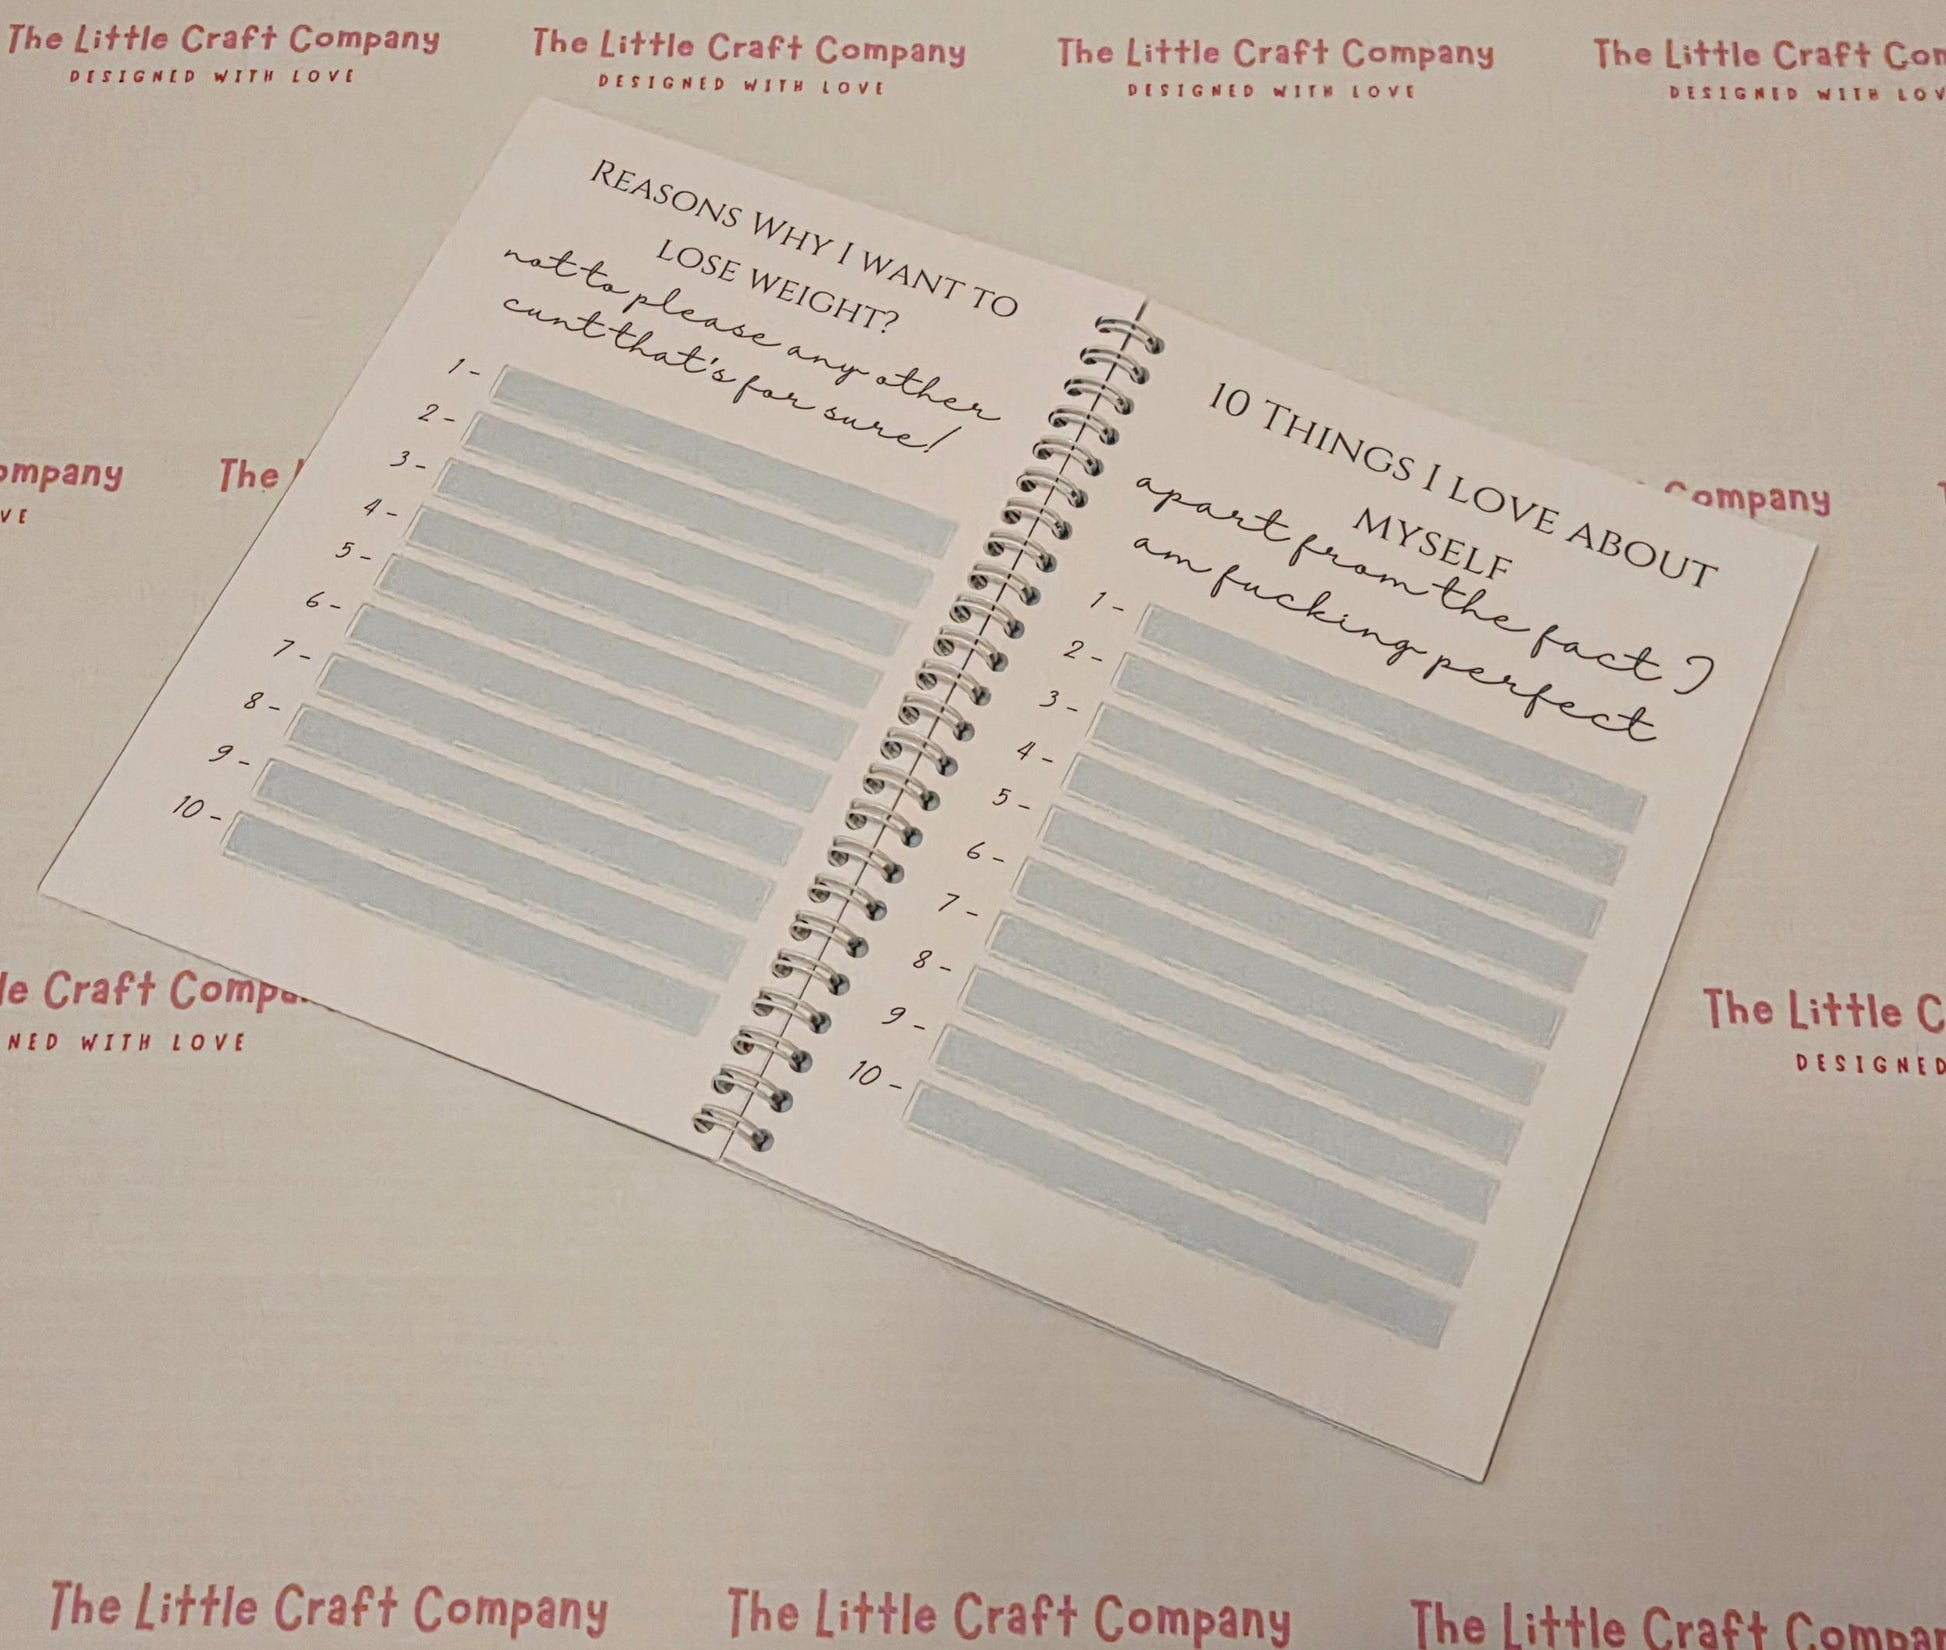 The Little Craft Company The Little Craft Company The Little Craft Company The Little Craft Com
DESIGNED WITH LOVE DESIGNED WITH LOVE DESIGNED WITH LOVE DESIGNED WITH LOV
REASONS WHY I WANT TO
LOSE WEIGHT?
not to please any other
cunt that's for sure!
1 -
2 -
3 -
4 -
5 -
6 -
7 -
8 -
9 -
10 -
10 THINGS I LOVE ABOUT
MYSELF
apart from the fact I
am fucking perfect
1 -
2 -
3 -
4 -
5 -
6 -
7 -
8 -
9 -
10 -
ompany The
VE
ompany
le Craft Compa
NED WITH LOVE
The Little C
DESIGNED
The Little Craft Company The Little Craft Company The Little Craft Compan